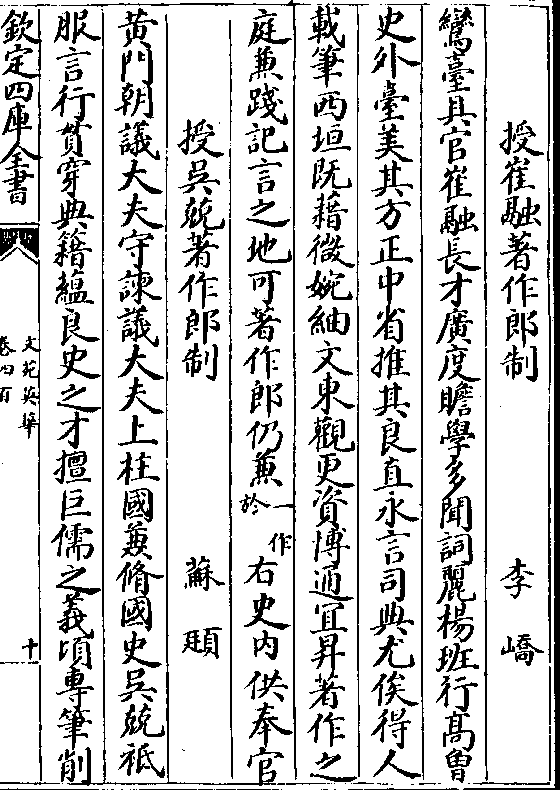 授崔融著作郎制 李嶠
鸞臺具官崔融長才廣度贍學多聞詞麗楊班行髙曾
史外臺美其方正中省推其良直永言司典尤俟得人
載筆西垣既藉微婉紬文東觀更資博通宜昇著作之
庭兼踐記言之地可著作郎仍兼一作於右史内供奉官
授吳兢著作郎制 蘇頲
黄門朝議大夫守諫議大夫上柱國兼脩國史吳兢祗
服言行貫穿典籍藴良史之才擅巨儒之義頃專筆削
欽定四庫全書
文苑英華
卷四百
十